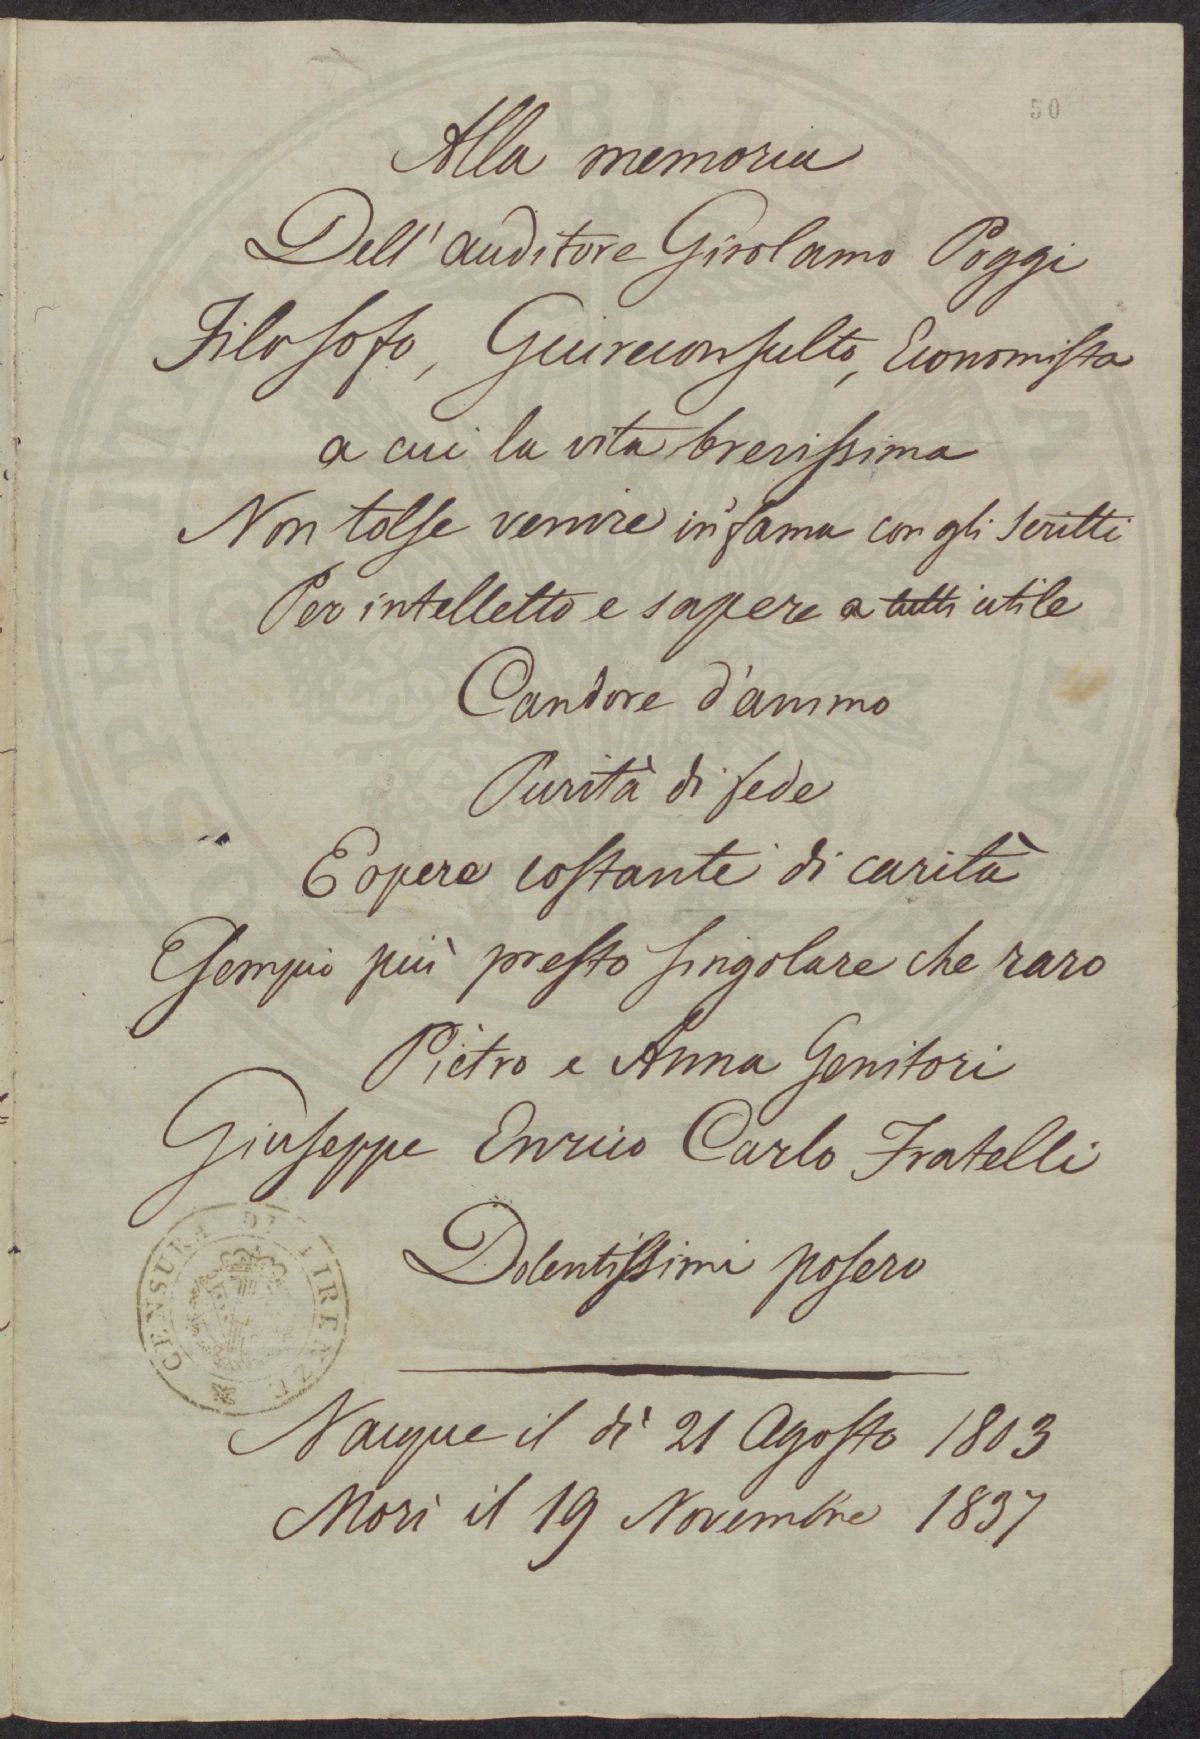 50
Alla memoria
Dell'auditore Girolamo Poggi
Filosofo, Guireconsulto, Economista
a cui la vita brevissima
Non tolse venire in fama con gli scritti
Per intelletto e sapere a tutti utile
Candore d'animo
Purità di fede
E opera costante di carità
Esempio più presto singolare che raro
Pietro e Anna Genitori
Giuseppe Enrico Carlo Fratelli
Dolentissimi posero
CENSURA DI FIRENZE
Nacque il dì 21 Agosto 1803
Morì il 19 Novembre 1837